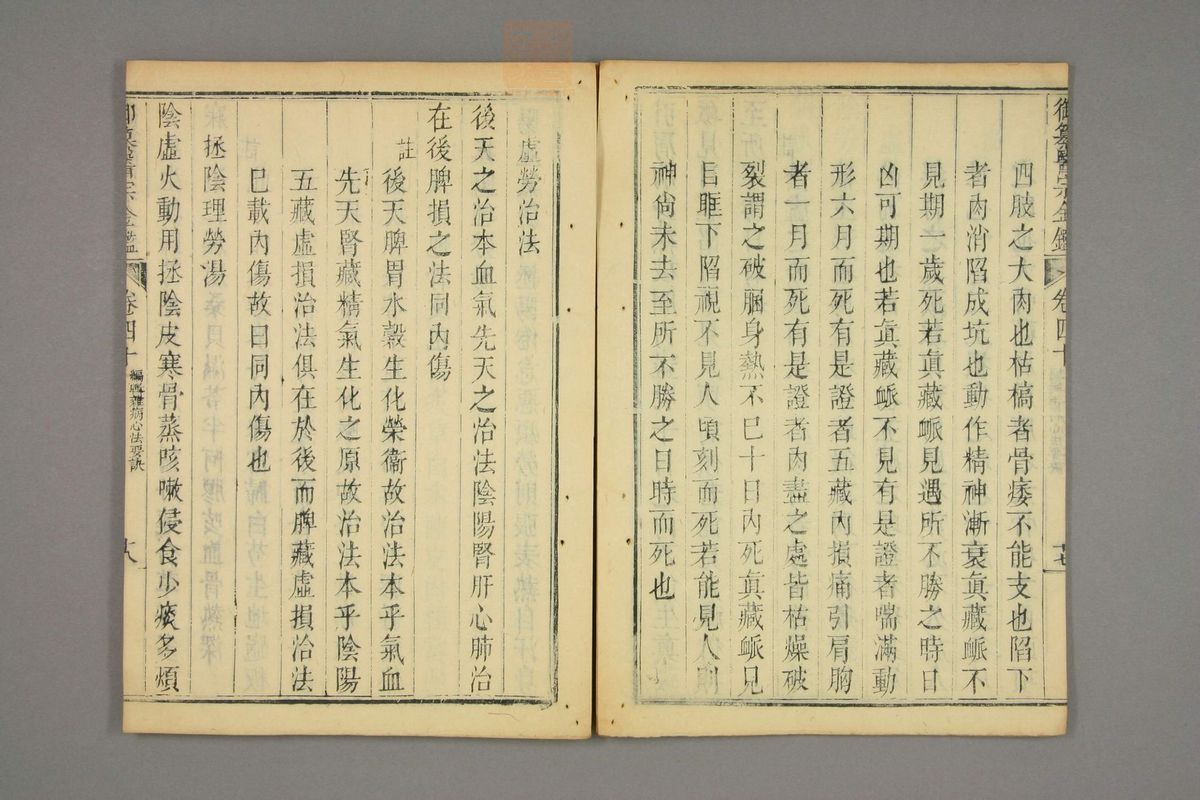 御纂醫宗金鑑 卷四十 十七
四肢之大肉也枯槁者骨痿不能支也陷下
者肉消陷成坑也動作精神漸衰眞藏脈不
見期一歲死若眞藏脈見遇所不勝之時日
凶可期也若眞藏脈不見有是證者喘滿動
形六月而死有是證者五藏內損痛引肩胸
者一月而死有是證者肉盡之處皆枯燥破
裂謂之破䐃身熱不已十日內死眞藏脈見
目眶下陷視不見人頃刻而死若能見人則
神尙未去至所不勝之日時而死也
虛勞治法
後天之治本血氣先天之治法陰陽腎肝心肺治
在後脾損之法同內傷
註
後天脾胃水穀生化榮衞故治法本乎氣血
先天腎藏精氣生化之原故治法本乎陰陽
五藏虛損治法俱在於後而脾藏虛損治法
已載內傷故曰同內傷也
拯陰理勞湯
陰虛火動用拯陰皮寒骨蒸咳嗽侵食少痰多煩
御纂醫宗金鑑 卷四十 編輯雜病心法要訣 十八